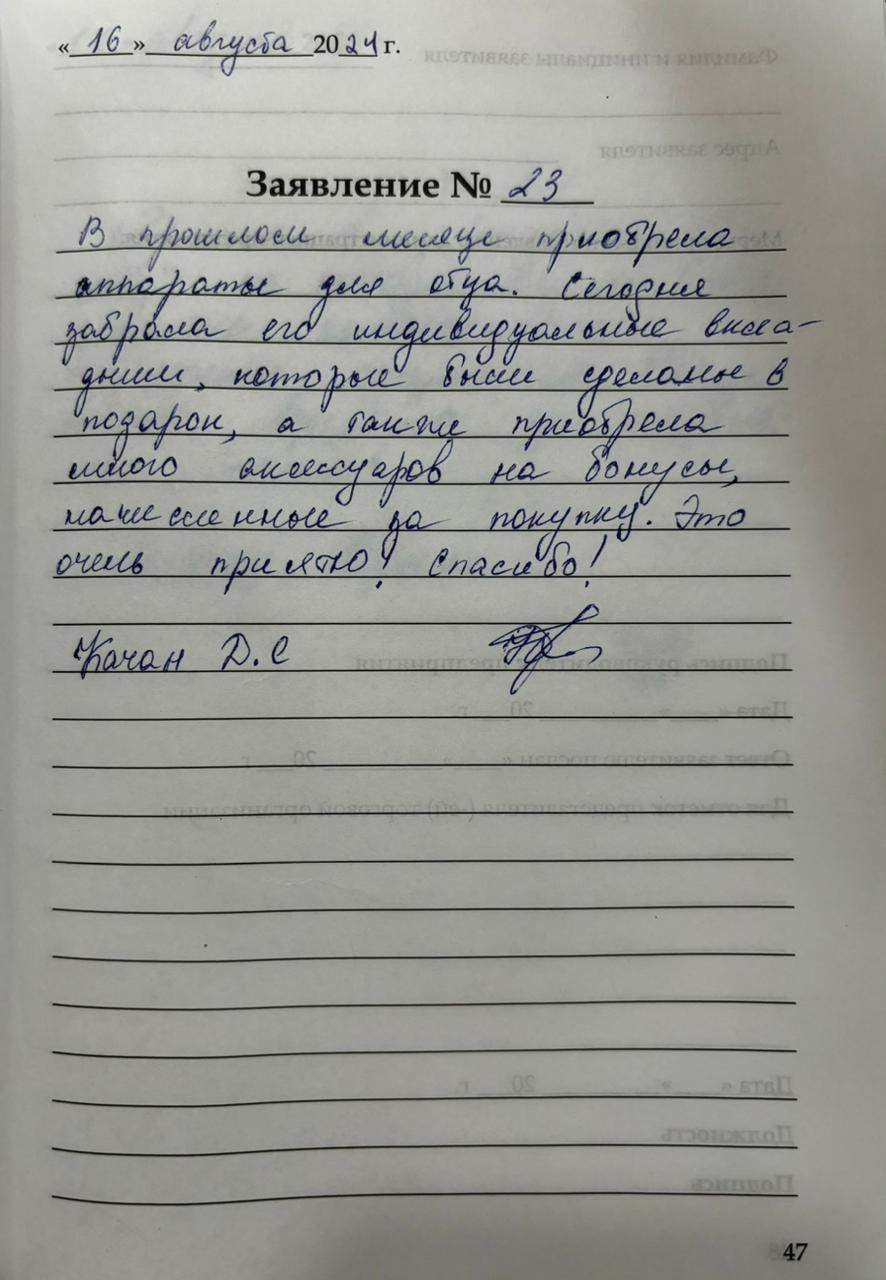 «16» августа 2024 г.
Заявление № 23
В прошлом месяце приобрела
аппараты для отца. Сегодня
забрала его индивидуальные вкла-
дыши, которые были сделаны в
подарок, а также приобрела
много аксессуаров на бонусы,
начисленные за покупку. Это
очень приятно! Спасибо!
Качан Д.С
47